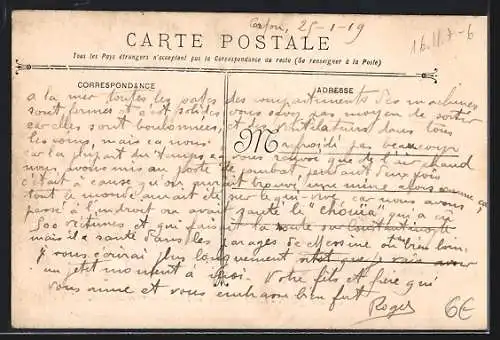 Corfou, 25-1-19
16.11.7-6
CARTE POSTALE
Tous les Pays étrangers n'acceptent pas la Correspondance au recto (Se renseigner à la Poste)
CORRESPONDANCE
ADRESSE
M
a la mer toutes les portes des compartiments des machines
sont fermées et c'est solides vous savez pas moyen de sortir
car elles sont boulonnées, et les ventilateurs dans tous
les coins, mais ca nous refroidi pas beaucoup
car la plupart du temps, ca vous envoie que de l'air chaud
nous avons mis au poste de combat, pendant deux fois
c'était à cause qu'on avait trouvé une mine alors comme ca
tout le monde aurait été sur le qui-vive, car nous avons
passé à l'endroit ou avait sauté le "chaouia", qui a eu
500 victimes et qui faisait la route sur Constantinople
mais il a sauté dans les parages de Messine et bien loin.
Je vous écrirai plus longuement
un petit moment à moi. Votre fils et frère qui
vous aime et vous embrasse bien fort
Roger
6€